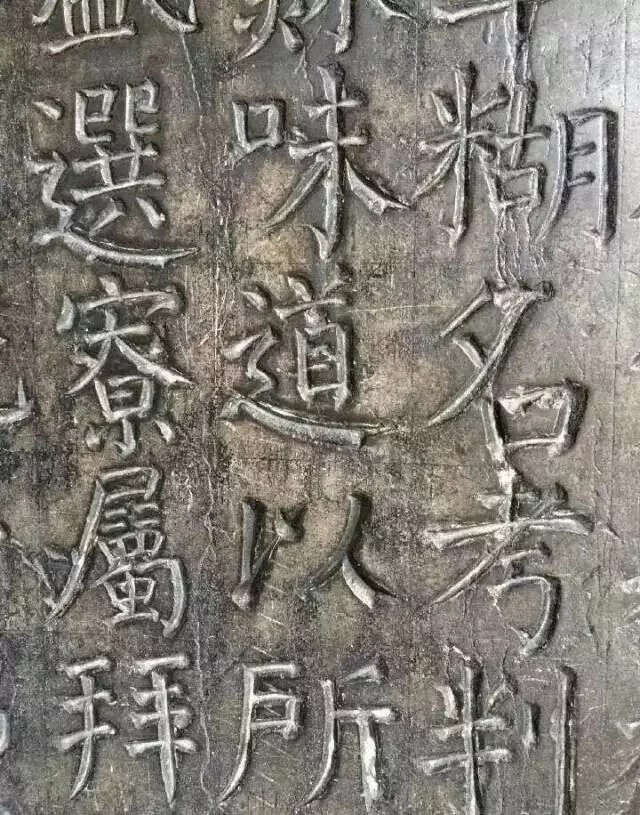 年糊名考判
蘇味道以所
盛選寮屬拜